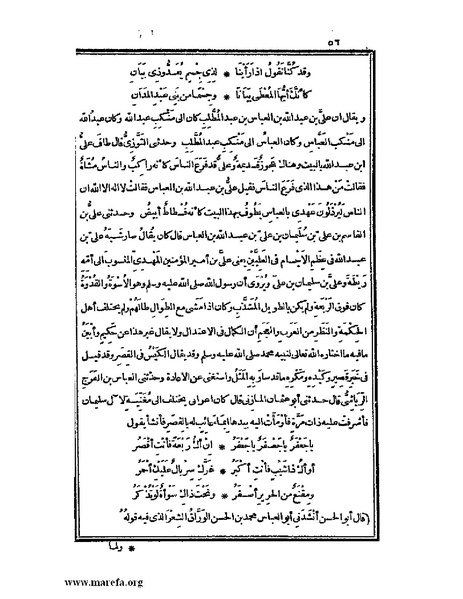 ٥٦
وقد كنّا نقول اذا رأينا * لذي جسم يُعدّ وذي بيان
كأنّك أيّها المُعطَى بيانًا * وجسمًا من بني عبد المدان
ويقال ان عليّ بن عبد الله بن العباس بن عبد المطّلب كان الى منكب عبد الله وكان عبد الله
الى منكب العبّاس وكان العباس الى منكب عبد المطّلب وحدثني التوّزيّ قال طاف عليّ
ابن عبد الله بالبيت وهناك عجوز قديمة وعليّ قد فرع الناس كأنه راكب والناس مشاة
فقالت من هذا الذي فرع الناس فقيل علي بن عبد الله بن العباس فقالت لا اله الا الله ان
الناس ليرذلون عهدي بالعباس يطوف بهذا البيت كأنه فسطاط أبيض وحدثني علي بن
القاسم بن علي بن سليمان بن علي بن عبد الله بن العباس قال كان يقال صار شبه علي بن
عبد الله في عظم الأجسام في العليّين يعني علي بن أمير المؤمنين المهدي المنسوب الى أمه
ريطة وعلي بن سليمان بن علي ويروى أن رسول الله صلى الله عليه وسلم وهو الأسوة والقدوة
كان فوق الربعة ولم يكن بالطويل المشذّب وكان اذا مشى مع الطوال طالهم ولم يختلف أهل
الحكمة والنظر من العرب والعجم أن الكمال في الاعتدال ولا يقال غير هذا عن حكيم وأبين
ما فيه ما اختاره الله تعالى لنبيه محمد صلى الله عليه وسلم وقد يقال الكيس في القصر وقد قيل
في خبر قصير وكيده ومكره ما قد سار به المثل واستغنى عن الاعادة وحدثني العباس بن الفرج
الرياشيّ قال حدثني أبو عثمان المازني قال كان اعرابي يختلف الى مغنّية لآل سليمان
فأشرفت عليه ذات مرة فأومأت اليه بيدها ايماء عائب له بالقصر فأنشأ يقول
يا جعفر يا جعفر يا جعفر * ان أك ربعة فأنت أقصر
أو أك ذا شيب فأنت أكبر * غرّك سربال عليك أحمر
ومقنع من الحرير أصفر * وتحت ذاك سوأة لو تذكر
(قال أبو الحسن أنشدني أبو العباس محمد بن الحسن الورّاق الشعر الذي فيه قوله
* ولما
www.marefa.org